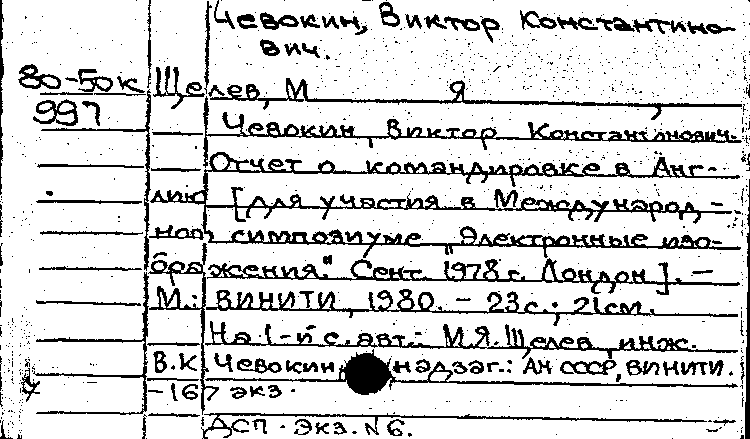 Чевокин, Виктор Константино-
вич.
80-50к Щелев, М Я ,
997
Чевокин, Виктор Константинович.
Отчет о командировке в Анг-
лию [для участия в Международ-
ном симпозиуме "Электронные изо-
бражения." Сент. 1978 г. Лондон]. -
М.: ВИНИТИ, 1980. - 23 с.; 21 см.
На 1-й с. авт.: М.Я. Щелев, инж.
В.К. Чевокин, надзаг.: АН СССР, ВИНИТИ.
-167 экз.
ДСП. Экз. N 6.